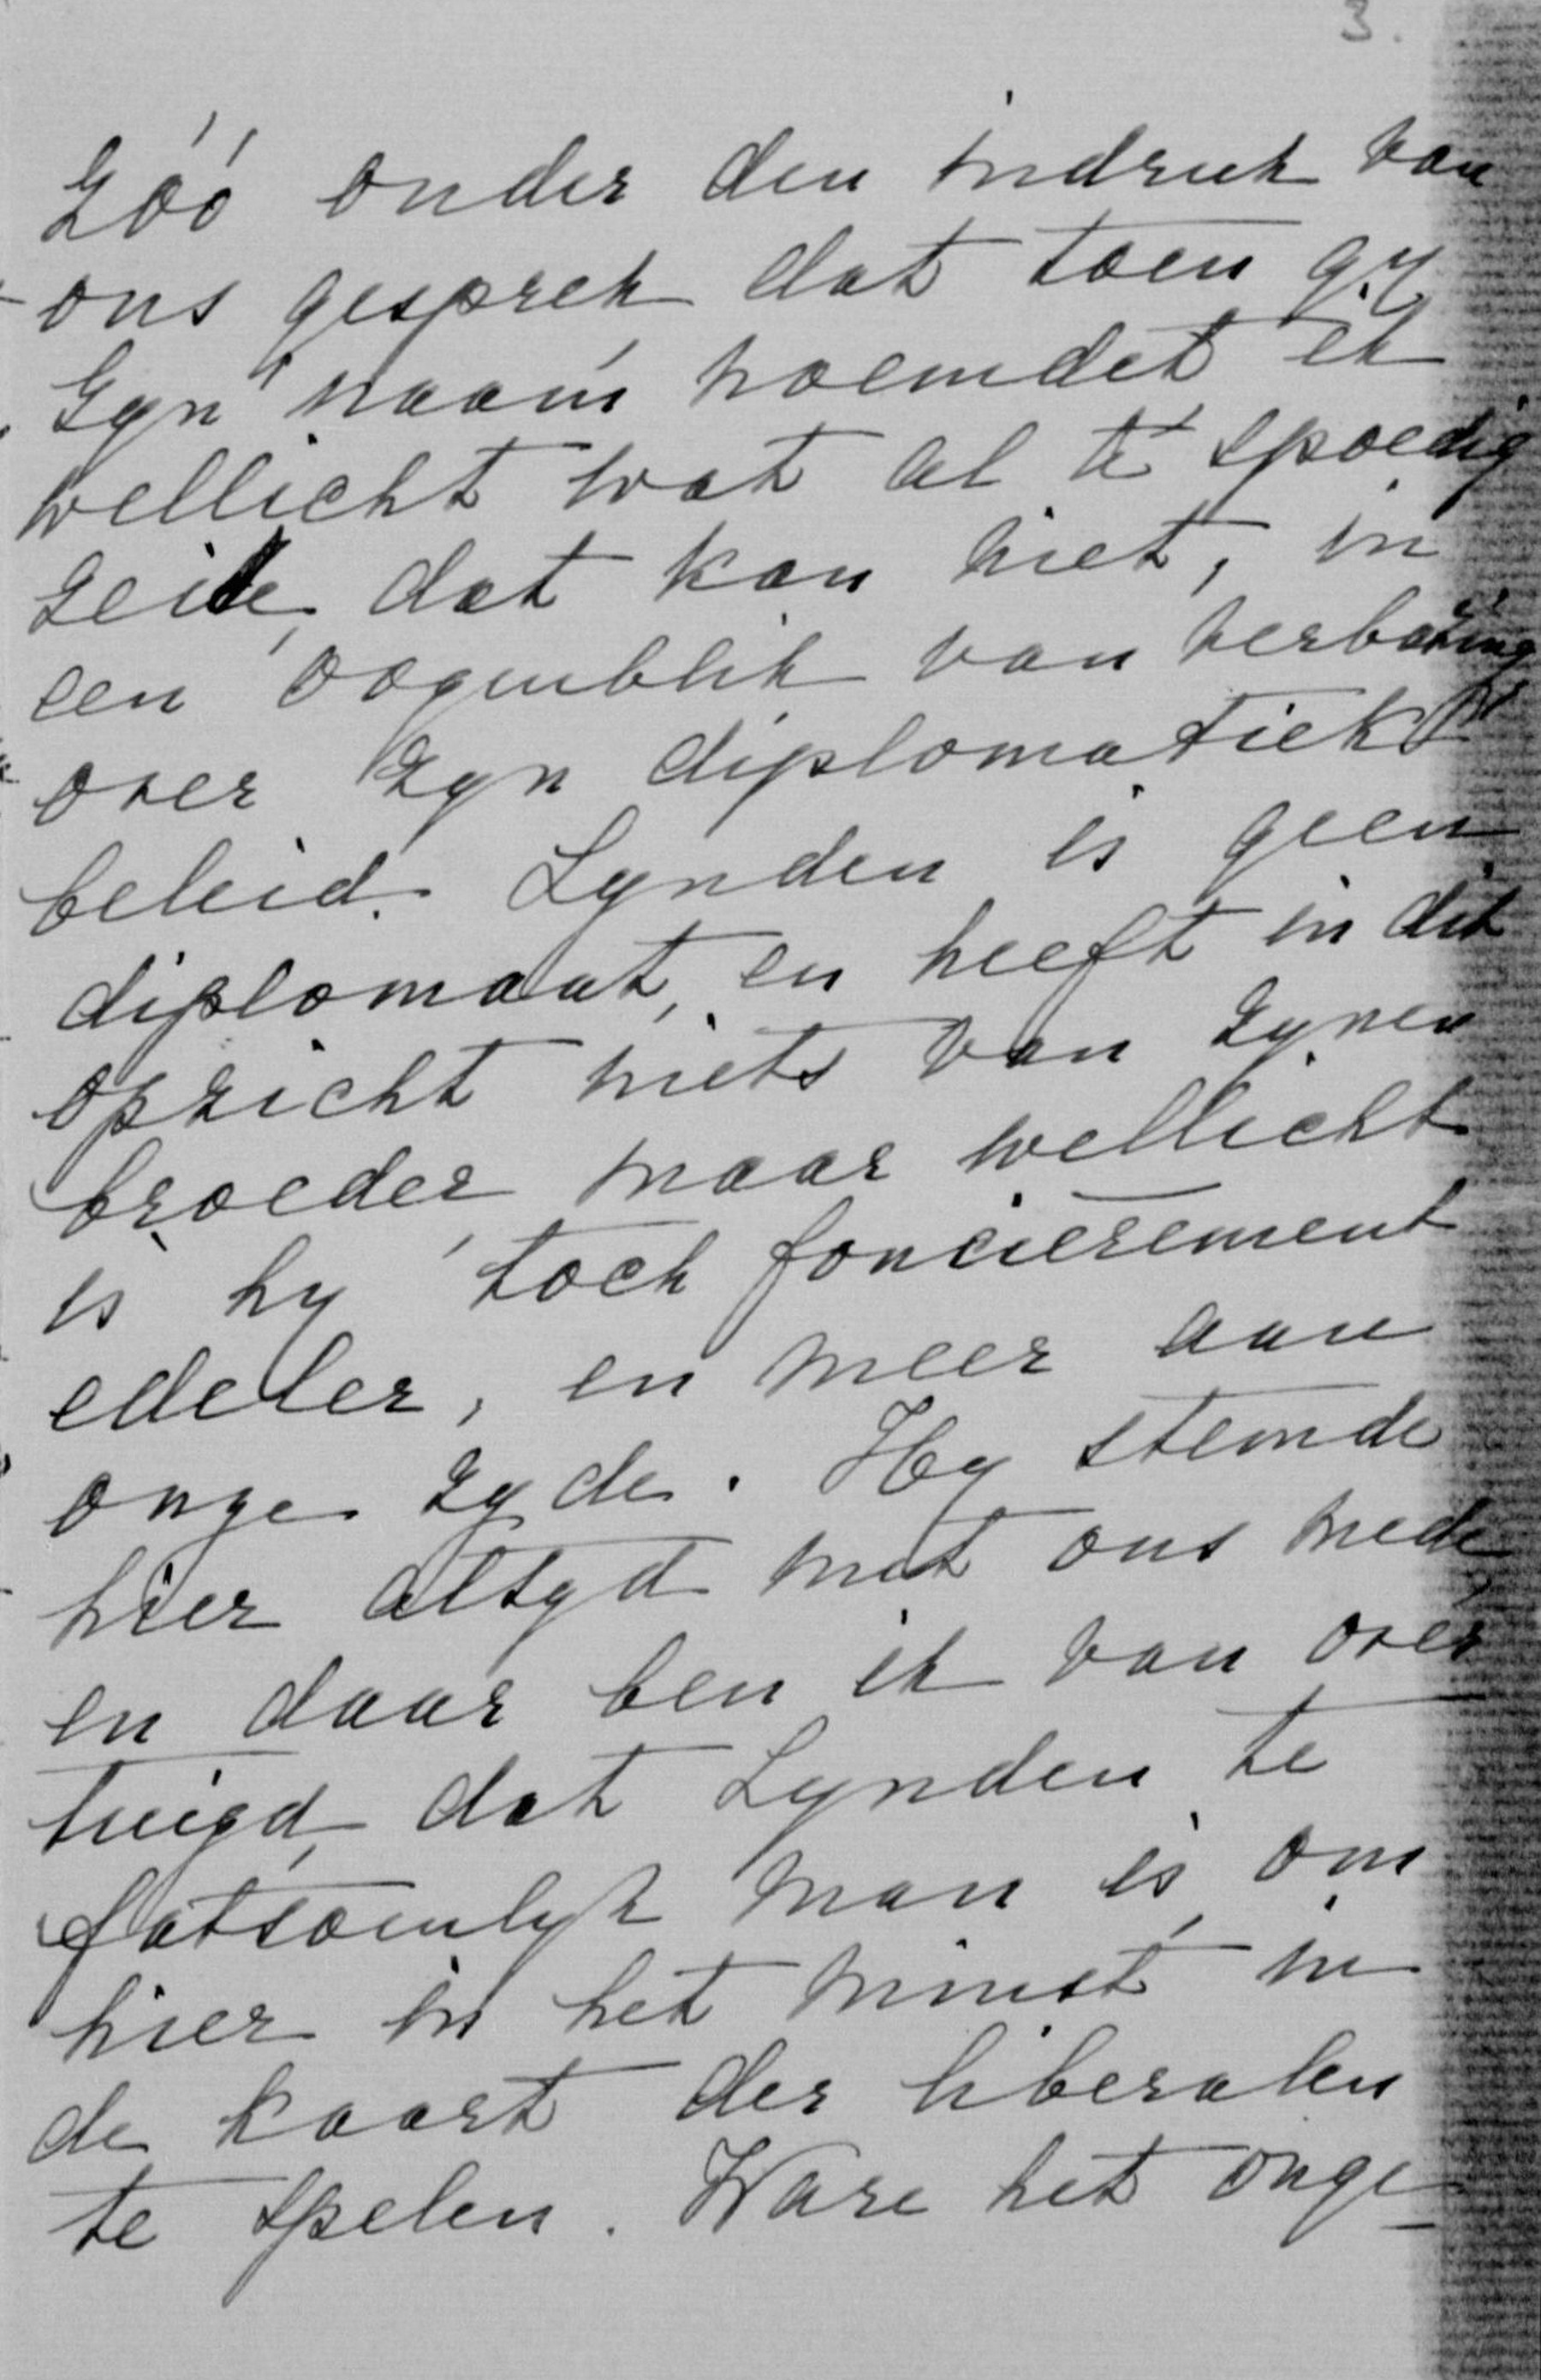 3.
zóó onder den indruk van
ons gesprek dat toen gy
zyn naam noemdet ik
wellicht wat al te spoedig
zeide, dat kan niet, in
een oogenblik van verbazing
over zyn diplomatiek
beleid. Lynden is geen
diplomaat, en heeft in dit
opzicht niets van zynen
broeder, maar wellicht
is hy toch foncièrement
edeler, en meer aan
onze zyde. Hy stemde
hier altyd met ons mede
en daar ben ik van over
tuigd, dat Lynden te
fatsoenlyk man is, om
hier in het minst in
de kaart der liberalen
te spelen. Ware het onge-